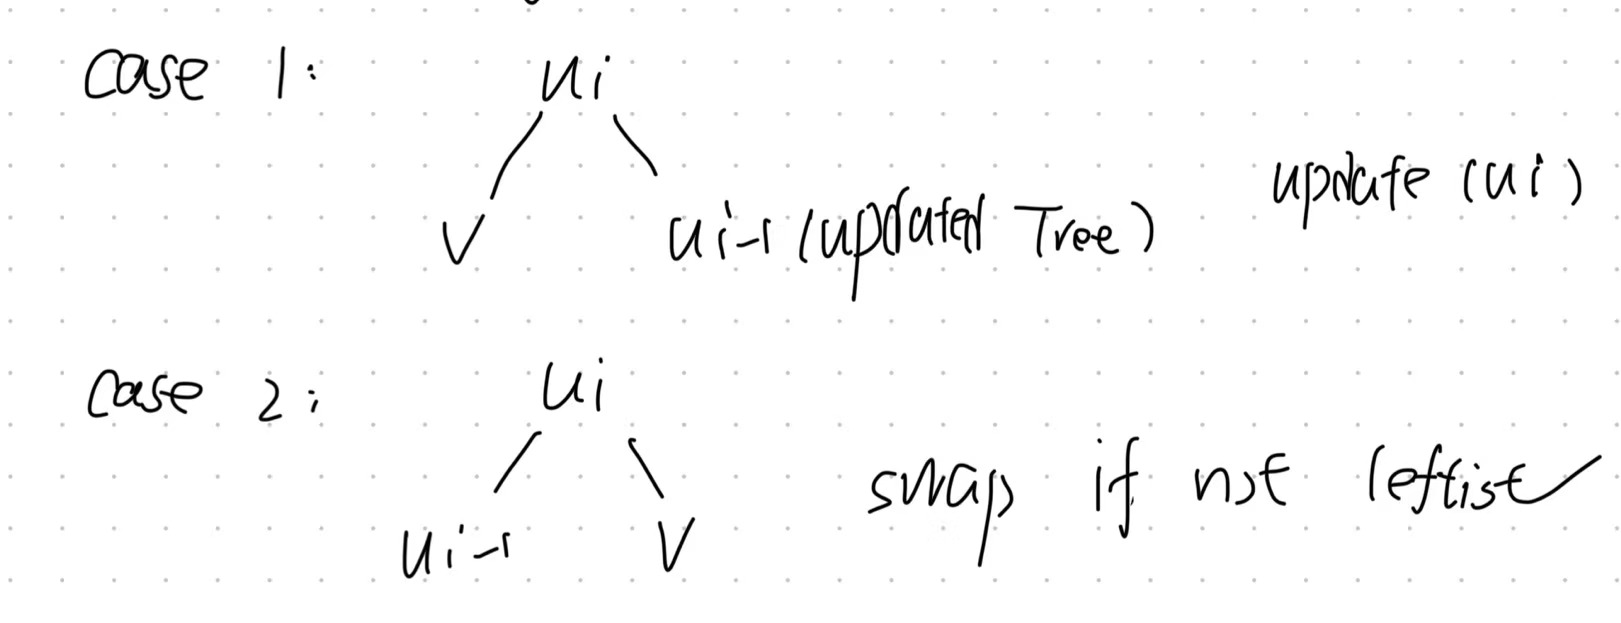 Case 1:
ui
update (ui)
V
ui-1 (updated Tree)
Case 2:
ui
swap if not leftist
ui-1
V